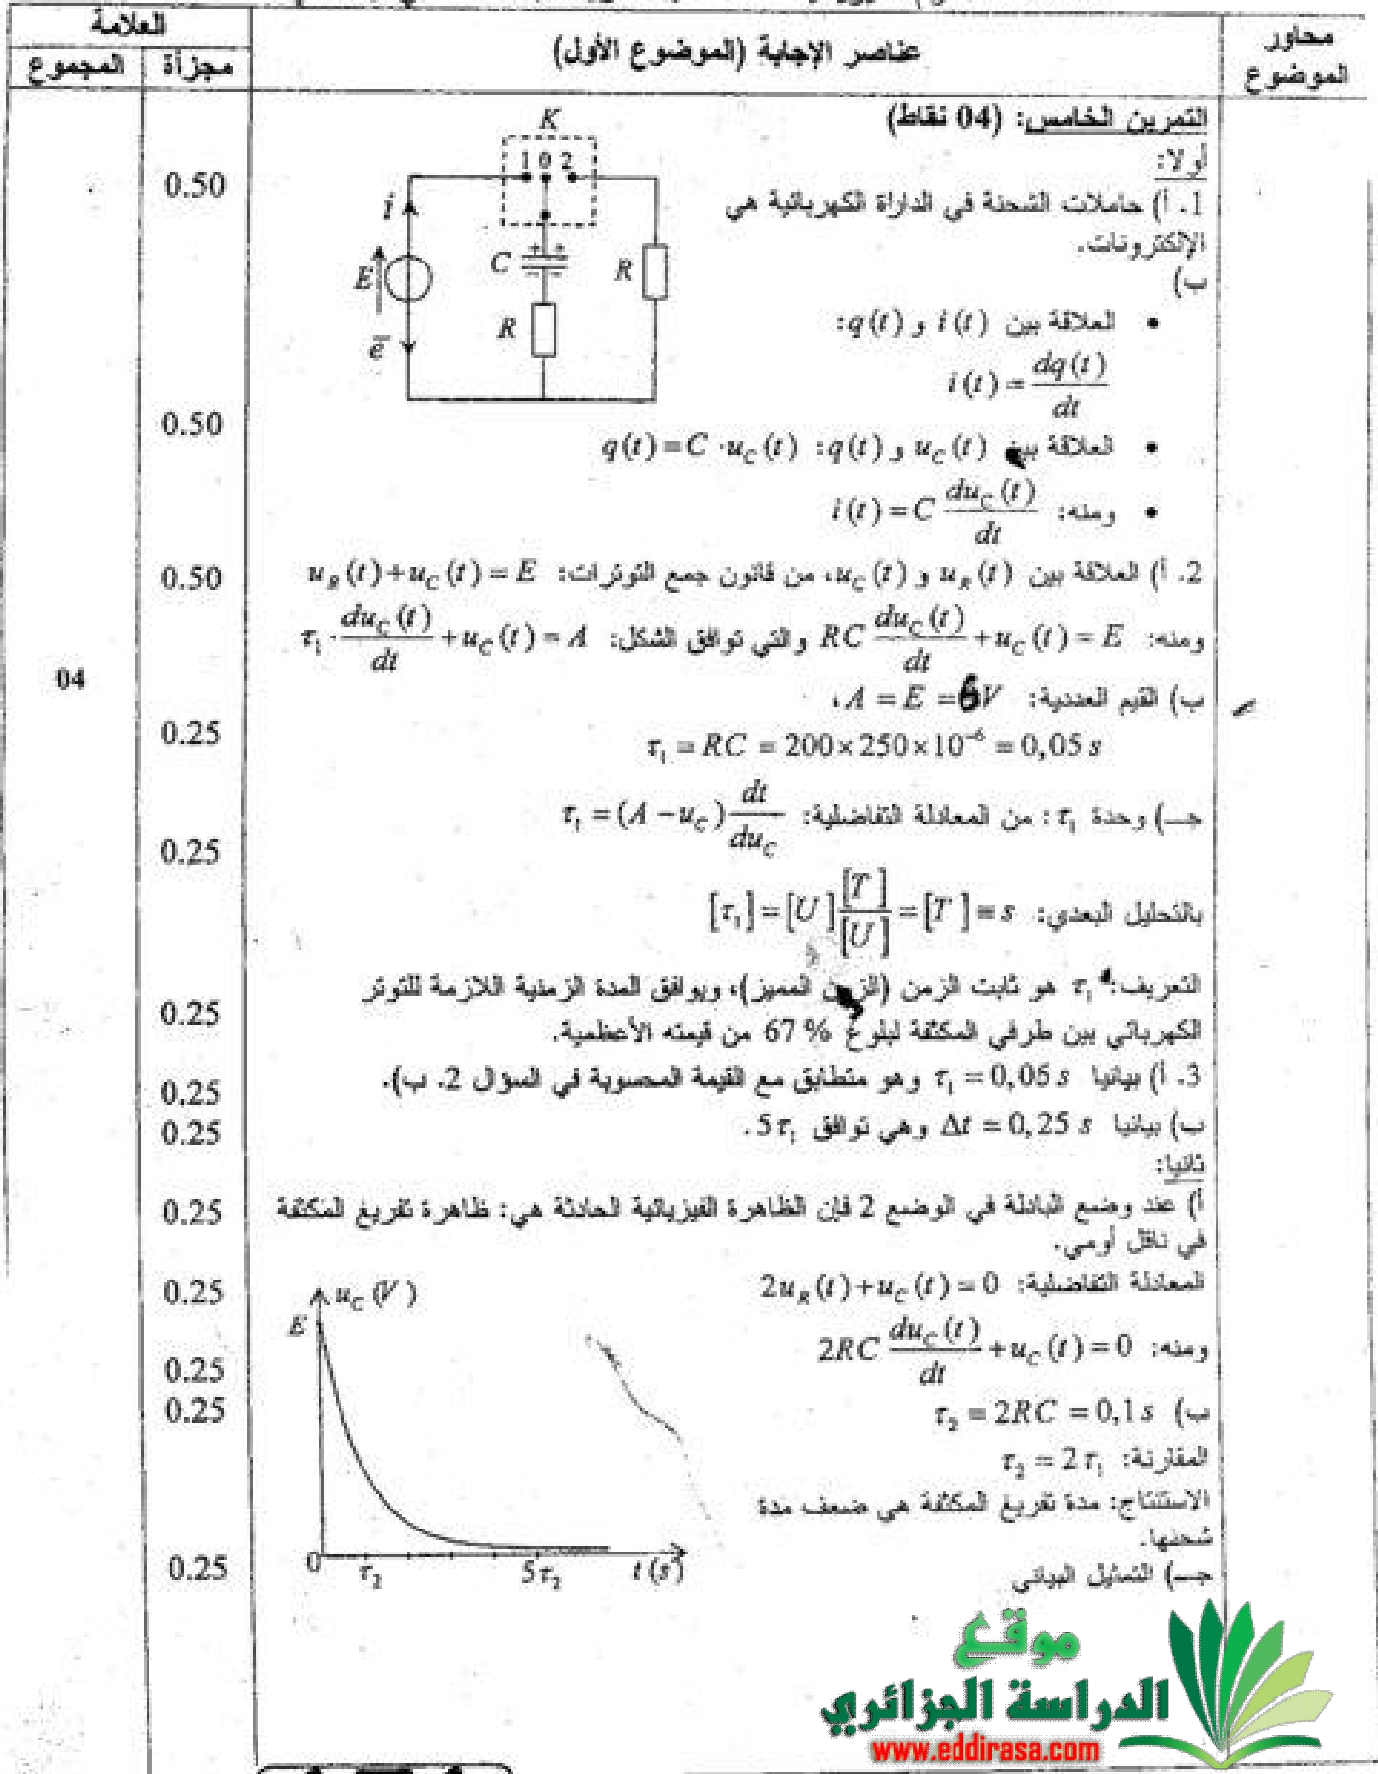 العلامة
محاور الموضوع
عناصر الإجابة (الموضوع الأول)
مجزأة
المجموع
التمرين الخامس: (04 نقاط)
أولا:
1. أ) حاملات الشحنة في الداراة الكهربائية هي
الإلكترونات.
ب)
• العلاقة بين i(t) و q(t):
i(t) = dq(t)/dt
• العلاقة بين u_C(t) و q(t): q(t) = C · u_C(t)
• ومنه: i(t) = C du_C(t)/dt
2. أ) العلاقة بين u_R(t) و u_C(t)، من قانون جمع التوترات: u_R(t) + u_C(t) = E
ومنه: RC du_C(t)/dt + u_C(t) = E والتي توافق الشكل: τ₁ · du_C(t)/dt + u_C(t) = A
ب) القيم العددية: A = E = 6V ،
τ₁ = RC = 200 × 250 × 10⁻⁶ = 0,05 s
جـ) وحدة τ₁: من المعادلة التفاضلية: τ₁ = (A − u_C) dt/du_C
بالتحليل البعدي: [τ₁] = [U] [T]/[U] = [T] ≡ s
التعريف: τ₁ هو ثابت الزمن (الزمن المميز)، ويوافق المدة الزمنية اللازمة للتوتر
الكهربائي بين طرفي المكثفة لبلوغ 67 % من قيمته الأعظمية.
3. أ) بيانيا τ₁ = 0,05 s وهو متطابق مع القيمة المحسوبة في السؤال 2. ب).
ب) بيانيا Δt = 0,25 s وهي توافق 5τ₁ .
ثانيا:
أ) عند وضع البادلة في الوضع 2 فإن الظاهرة الفيزيائية الحادثة هي: ظاهرة تفريغ المكثفة
في ناقل أومي.
المعادلة التفاضلية: 2u_R(t) + u_C(t) = 0
ومنه: 2RC du_C(t)/dt + u_C(t) = 0
ب) τ₂ = 2RC = 0,1 s
المقارنة: τ₂ = 2 τ₁
الاستنتاج: مدة تفريغ المكثفة هي ضعف مدة
شحنها.
جـ) التمثيل البياني
K
1 0 2
i
E
C
+ +
− −
R
R
e⁻
u_C (V)
E
0
τ₂
5τ₂
t (s)
0.50
0.50
0.50
0.25
0.25
0.25
0.25
0.25
0.25
0.25
0.25
0.25
0.25
04
موقع
الدراسة الجزائري
www.eddirasa.com